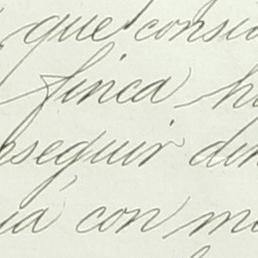 que consi
finca h
nseguir din
ia con m